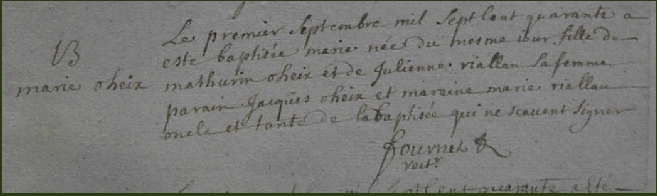 B
marie oheix
Le premier septembre mil sept cent quarante a
esté baptisée marie née du mesme iour fille de
mathurin oheix et de Julienne riallan sa femme
parain Jacques oheix et maraine marie riallan
oncle et tante de la baptisée qui ne scauent signer
fournet
rect.r
sept cent quarante a esté